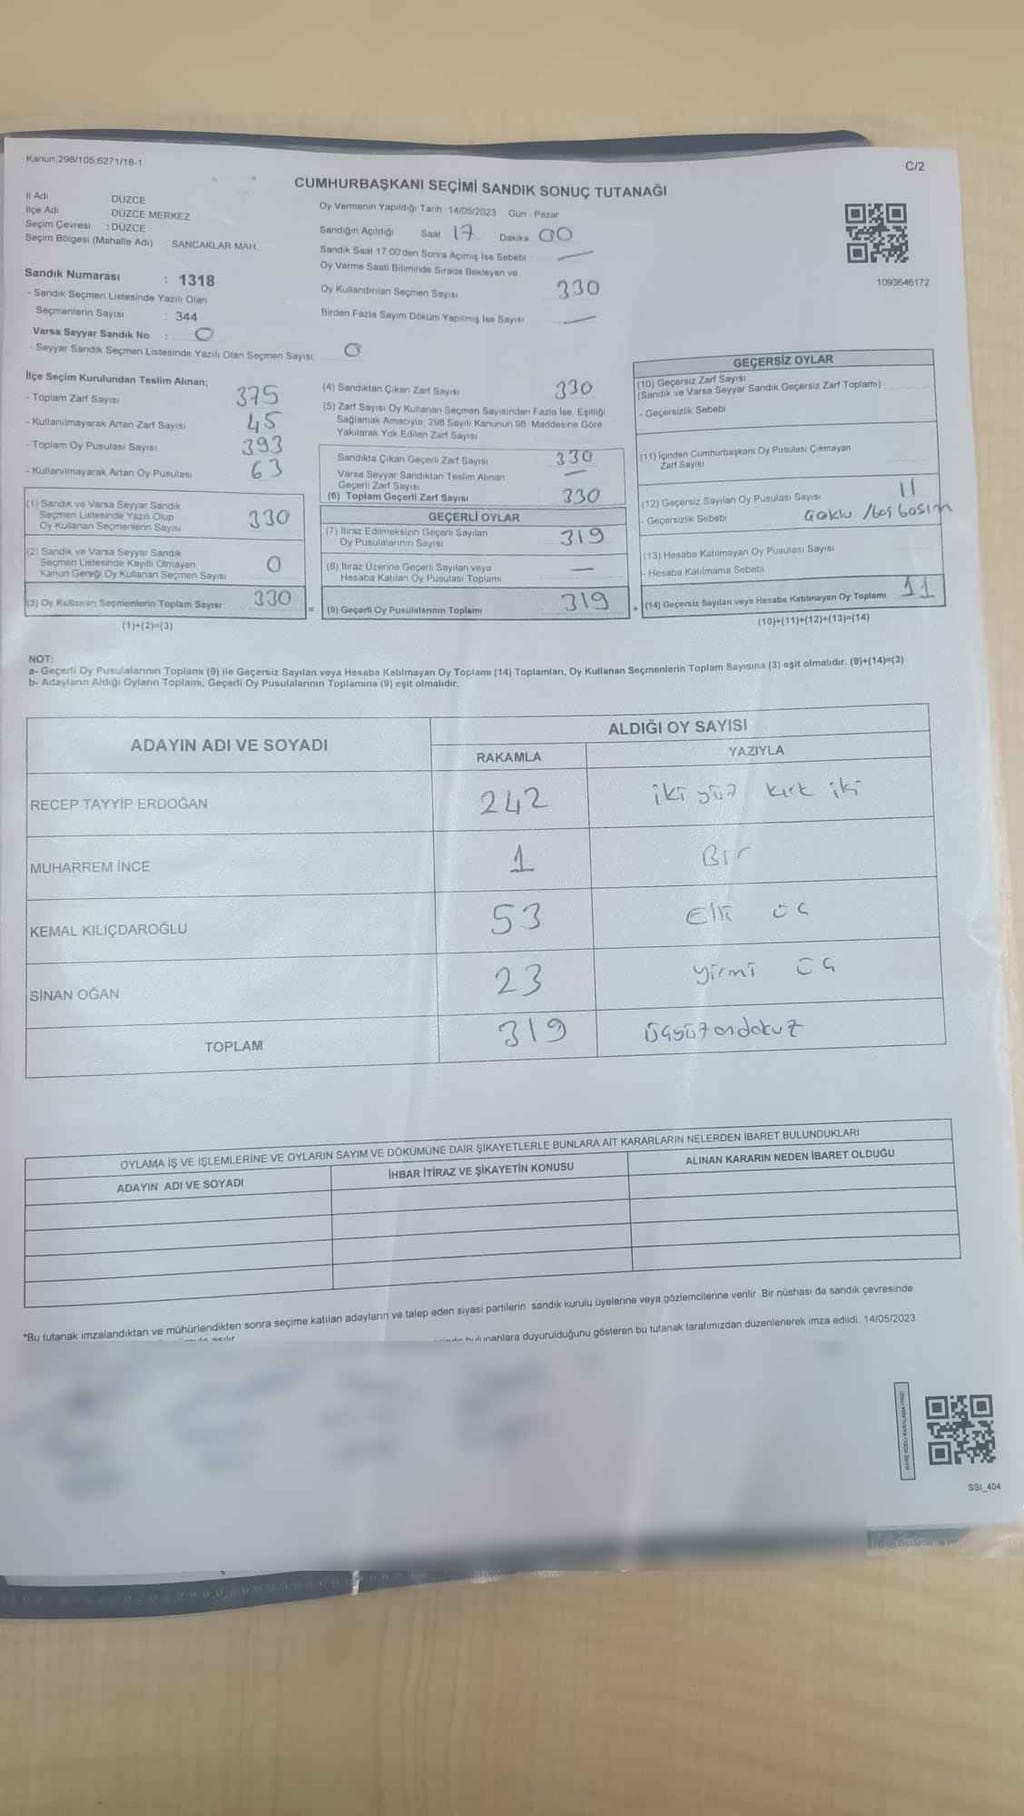 Kanun:298/105,6271/18-1
C/2
CUMHURBAŞKANI SEÇİMİ SANDIK SONUÇ TUTANAĞI
İl Adı DÜZCE
İlçe Adı DÜZCE MERKEZ
Seçim Çevresi : DÜZCE
Seçim Bölgesi (Mahalle Adı) SANCAKLAR MAH.
Oy Vermenin Yapıldığı Tarih: 14/05/2023 Gün: Pazar
Sandığın Açıldığı Saat 17 Dakika 00
Sandık Saat 17.00'den Sonra Açımış İse Sebebi —
Oy Verme Saati Bitiminde Sırada Bekleyen ve
Oy Kullandırılan Seçmen Sayısı 330
Birden Fazla Sayım Döküm Yapılmış İse Sayısı —
1093646172
Sandık Numarası : 1318
- Sandık Seçmen Listesinde Yazılı Olan
Seçmenlerin Sayısı : 344
Varsa Seyyar Sandık No : 0
- Seyyar Sandık Seçmen Listesinde Yazılı Olan Seçmen Sayısı 0
İlçe Seçim Kurulundan Teslim Alınan;
- Toplam Zarf Sayısı 375
- Kullanılmayarak Artan Zarf Sayısı 45
- Toplam Oy Pusulası Sayısı 393
- Kullanılmayarak Artan Oy Pusulası 63
(1) Sandık ve Varsa Seyyar Sandık
Seçmen Listesinde Yazılı Olup
Oy Kullanan Seçmenlerin Sayısı 330
(2) Sandık ve Varsa Seyyar Sandık
Seçmen Listesinde Kayıtlı Olmayan
Kanun Gereği Oy Kullanan Seçmen Sayısı 0
(3) Oy Kullanan Seçmenlerin Toplam Sayısı 330
(1)+(2)=(3)
(4) Sandıktan Çıkan Zarf Sayısı 330
(5) Zarf Sayısı Oy Kullanan Seçmen Sayısından Fazla İse, Eşitliği
Sağlamak Amacıyla; 298 Sayılı Kanunun 98. Maddesine Göre
Yakılarak Yok Edilen Zarf Sayısı
Sandıkta Çıkan Geçerli Zarf Sayısı 330
Varsa Seyyar Sandıktan Teslim Alınan
Geçerli Zarf Sayısı —
(6) Toplam Geçerli Zarf Sayısı 330
GEÇERLİ OYLAR
(7) İtiraz Edilmeksizin Geçerli Sayılan
Oy Pusulalarının Sayısı 319
(8) İtiraz Üzerine Geçerli Sayılan veya
Hesaba Katılan Oy Pusulası Toplamı —
= (9) Geçerli Oy Pusulalarının Toplamı 319
GEÇERSİZ OYLAR
(10) Geçersiz Zarf Sayısı
(Sandık ve Varsa Seyyar Sandık Geçersiz Zarf Toplamı)
- Geçersizlik Sebebi
(11) İçinden Cumhurbaşkanı Oy Pusulası Çıkmayan
Zarf Sayısı
(12) Geçersiz Sayılan Oy Pusulası Sayısı 11
- Geçersizlik Sebebi
(13) Hesaba Katılmayan Oy Pusulası Sayısı
- Hesaba Katılmama Sebebi
+ (14) Geçersiz Sayılan veya Hesaba Katılmayan Oy Toplamı 11
(10)+(11)+(12)+(13)=(14)
NOT:
a- Geçerli Oy Pusulalarının Toplamı (9) ile Geçersiz Sayılan veya Hesaba Katılmayan Oy Toplamı (14) Toplamları, Oy Kullanan Seçmenlerin Toplam Sayısına (3) eşit olmalıdır. (9)+(14)=(3)
b- Adayların Aldığı Oyların Toplamı, Geçerli Oy Pusulalarının Toplamına (9) eşit olmalıdır.
ADAYIN ADI VE SOYADI
ALDIĞI OY SAYISI
RAKAMLA YAZIYLA
RECEP TAYYİP ERDOĞAN 242 iki yüz kırk iki
MUHARREM İNCE 1 Bir
KEMAL KILIÇDAROĞLU 53 Elli üç
SİNAN OĞAN 23 yirmi üç
TOPLAM 319 üçyüzondokuz
OYLAMA İŞ VE İŞLEMLERİNE VE OYLARIN SAYIM VE DÖKÜMÜNE DAİR ŞİKAYETLERLE BUNLARA AİT KARARLARIN NELERDEN İBARET BULUNDUKLARI
ADAYIN ADI VE SOYADI İHBAR İTİRAZ VE ŞİKAYETİN KONUSU ALINAN KARARIN NEDEN İBARET OLDUĞU
*Bu tutanak imzalandıktan ve mühürlendikten sonra seçime katılan adayların ve talep eden siyasi partilerin sandık kurulu üyelerine veya gözlemcilerine verilir. Bir nüshası da sandık çevresinde
bulunanlara duyurulduğunu gösteren bu tutanak tarafımızdan düzenlenerek imza edildi. 14/05/2023
SSI_404